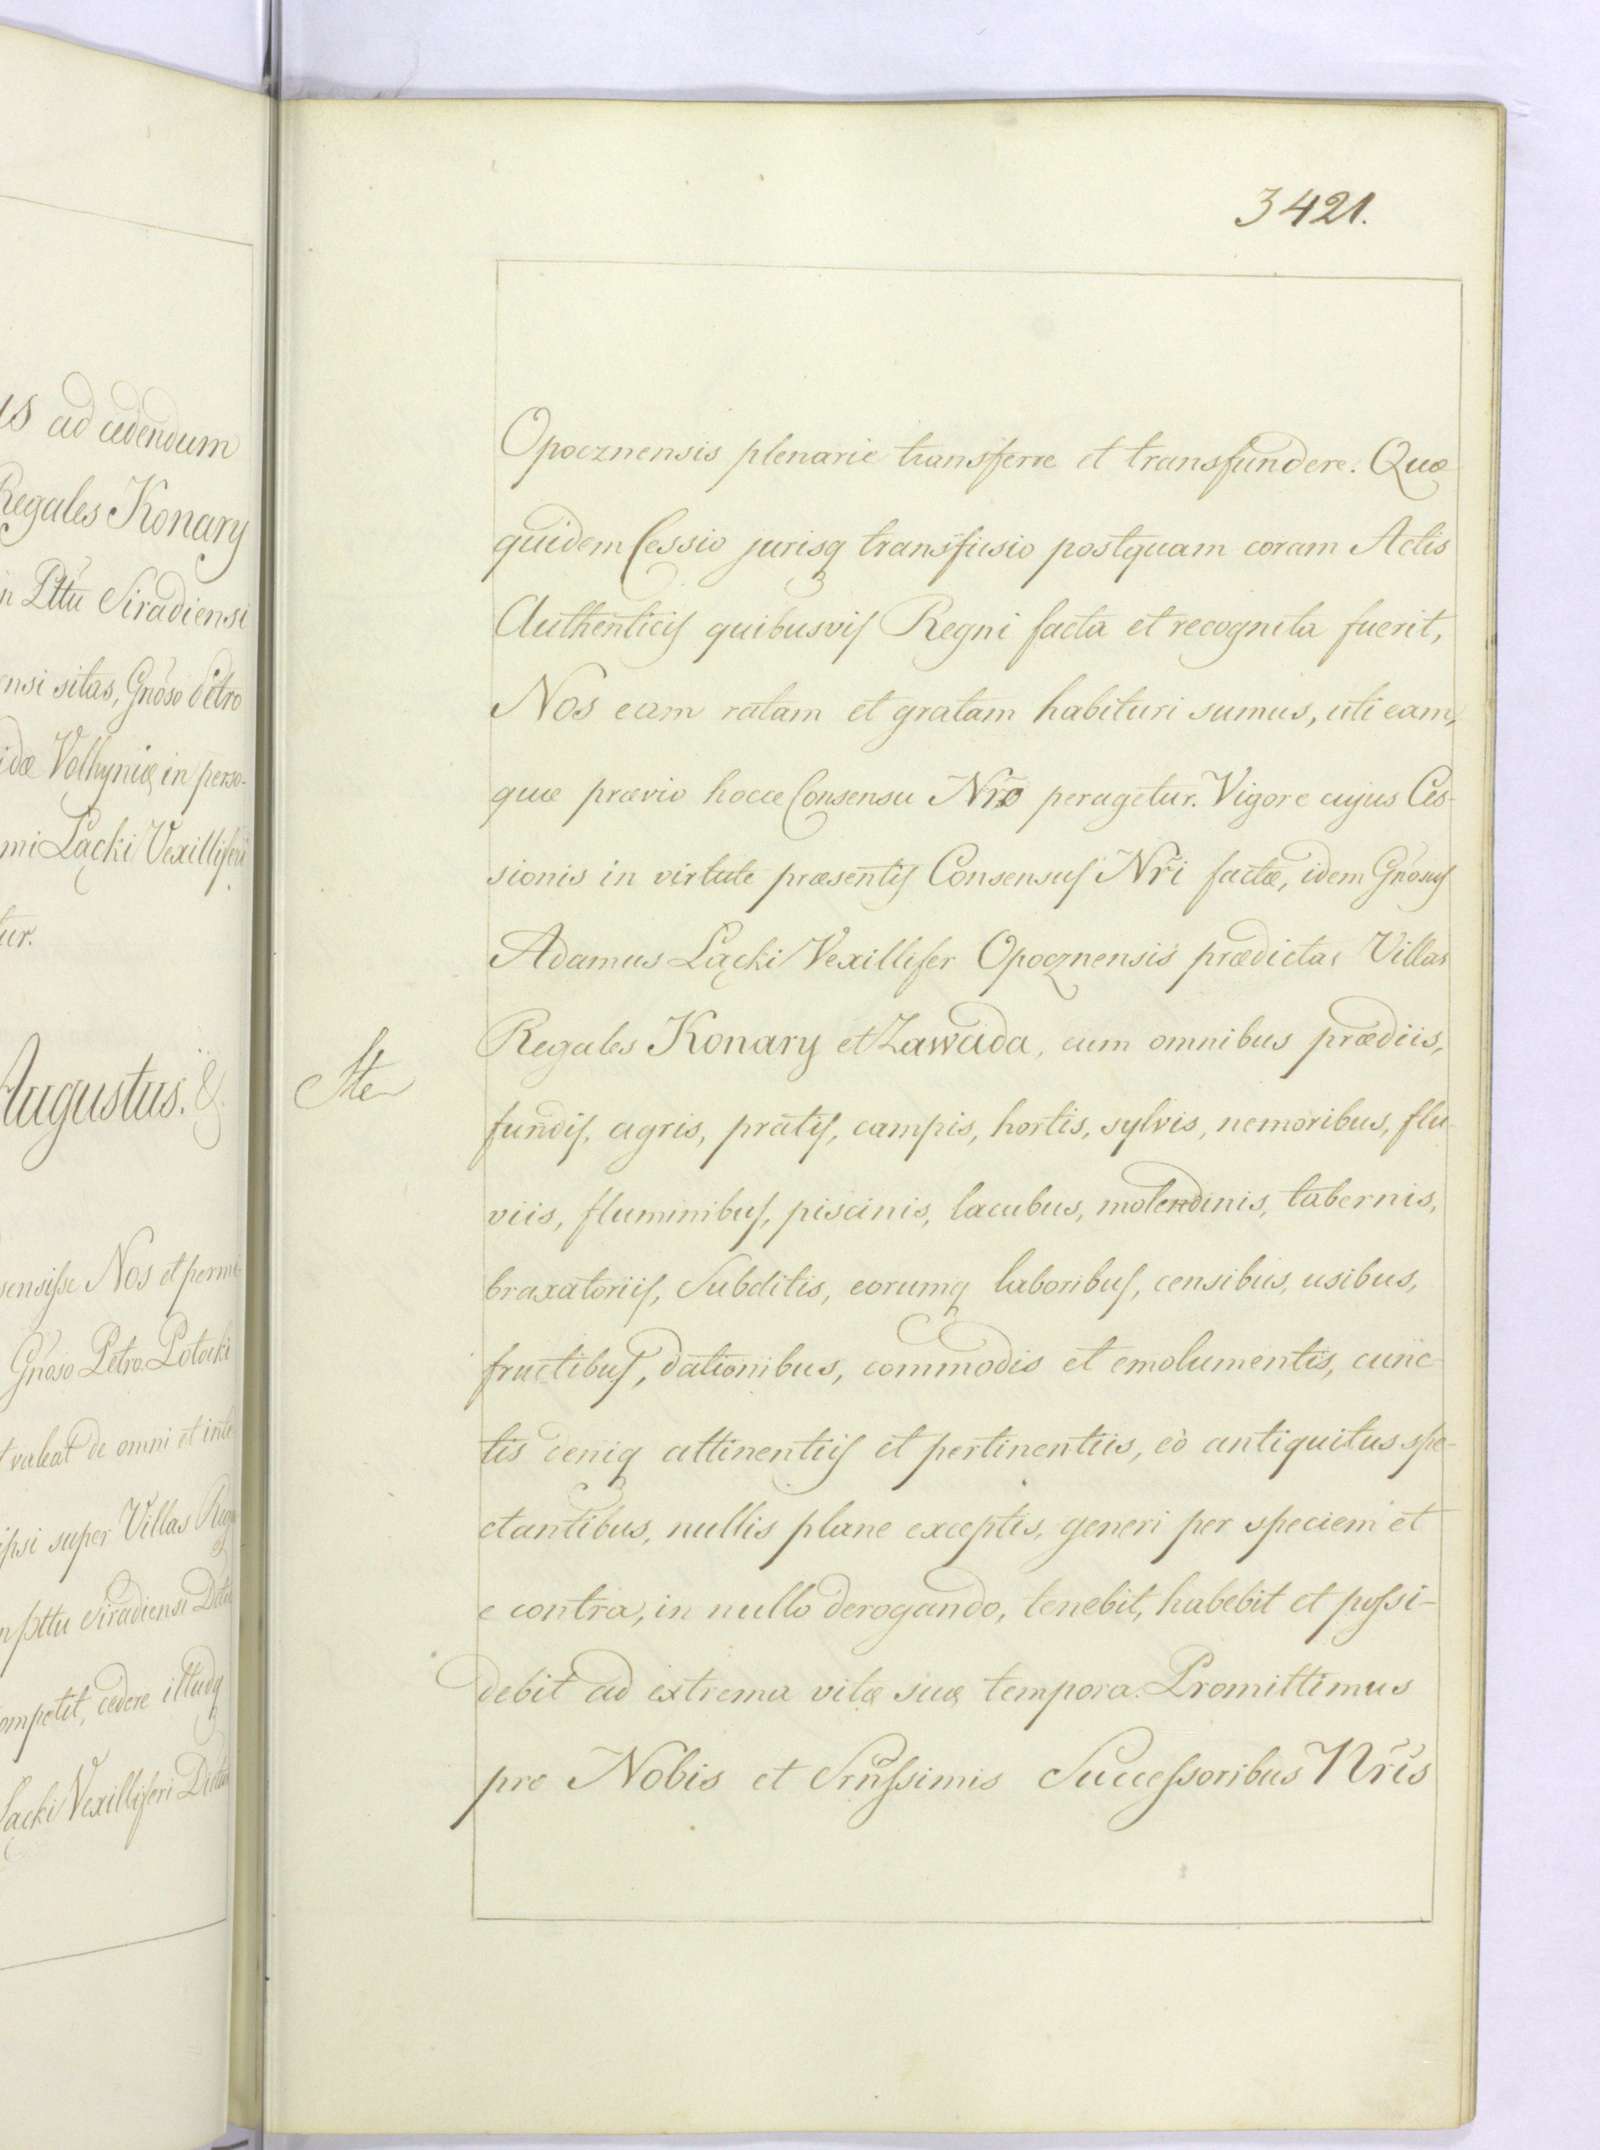 us ad cedendum
Regales Konary
n Pttu Siradiensi
ensi sitas, Gnoso Petro
idæ Volhyniæ in perso-
mi Łącki Vexilliferi
tur.
Augustus. &.
sensisse Nos et permi
Gnoso Petro Potocki
t valeat de omni et inte
ipsi super Villas Reg
n Pttu Siradiensi
ompetit, cedere illudq
Łącki Vexilliferi
3421.
Opocznensis plenarie transferre et transfundere. Quæ
quidem Cessio jurisq transfusio postquam coram Actis
Authenticis quibusvis Regni facta et recognita fuerit,
Nos eam ratam et gratam habituri sumus, uti eam,
quæ prævio hocce Consensu Nro peragetur. Vigore cujus Ces-
sionis in virtute præsentis Consensus Nri factæ, idem Gnosus
Adamus Łącki Vexillifer Opocznensis prædictas Villas
Regales Konary et Zawada, cum omnibus prædiis,
Ste
fundis, agris, pratis, campis, hortis, sylvis, nemoribus, flu
viis, fluminibus, piscinis, lacubus, molendinis, tabernis,
braxatoriis, Subditis, eorumq laboribus, censibus, usibus,
fructibus, dationibus, commodis et emolumentis, cunc-
tis deniq attinentiis et pertinentiis, eò antiquitus spe-
ctantibus, nullis plane exceptis, generi per speciem et
e contra, in nullo derogando, tenebit, habebit et possi-
debit ad extrema vitæ suæ tempora. Promittimus
pro Nobis et Srnssimis Successoribus Nris